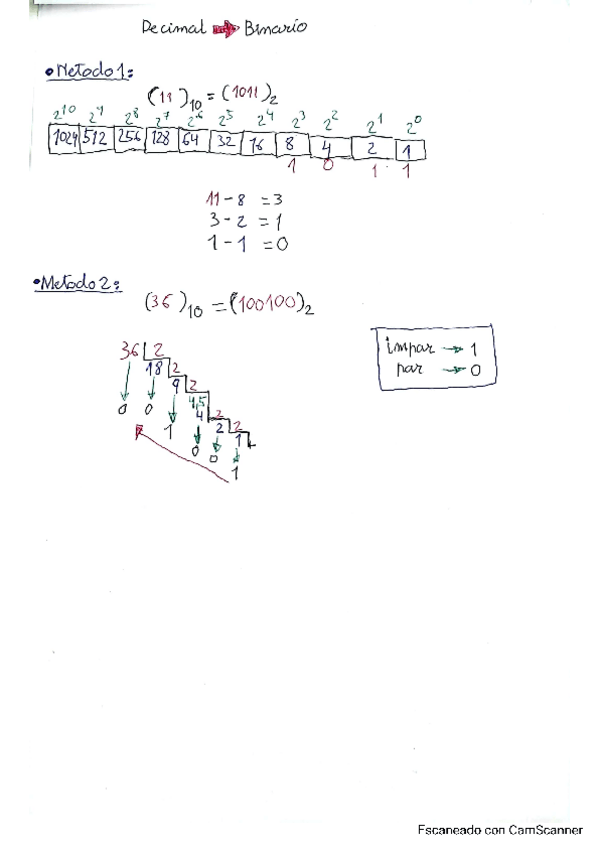 Decimal → Binario
• Metodo 1:
(11)₁₀ = (1011)₂
2¹⁰ 2⁹ 2⁸ 2⁷ 2⁶ 2⁵ 2⁴ 2³ 2² 2¹ 2⁰
1024 512 256 128 64 32 16 8 4 2 1
1 0 1 1
11 - 8 = 3
3 - 2 = 1
1 - 1 = 0
• Metodo 2:
(36)₁₀ = (100100)₂
impar → 1
par → 0
36 2
18 2
9 2
4,5
4 2
2 2
1
0 0 1 0 0 1
Escaneado con CamScanner